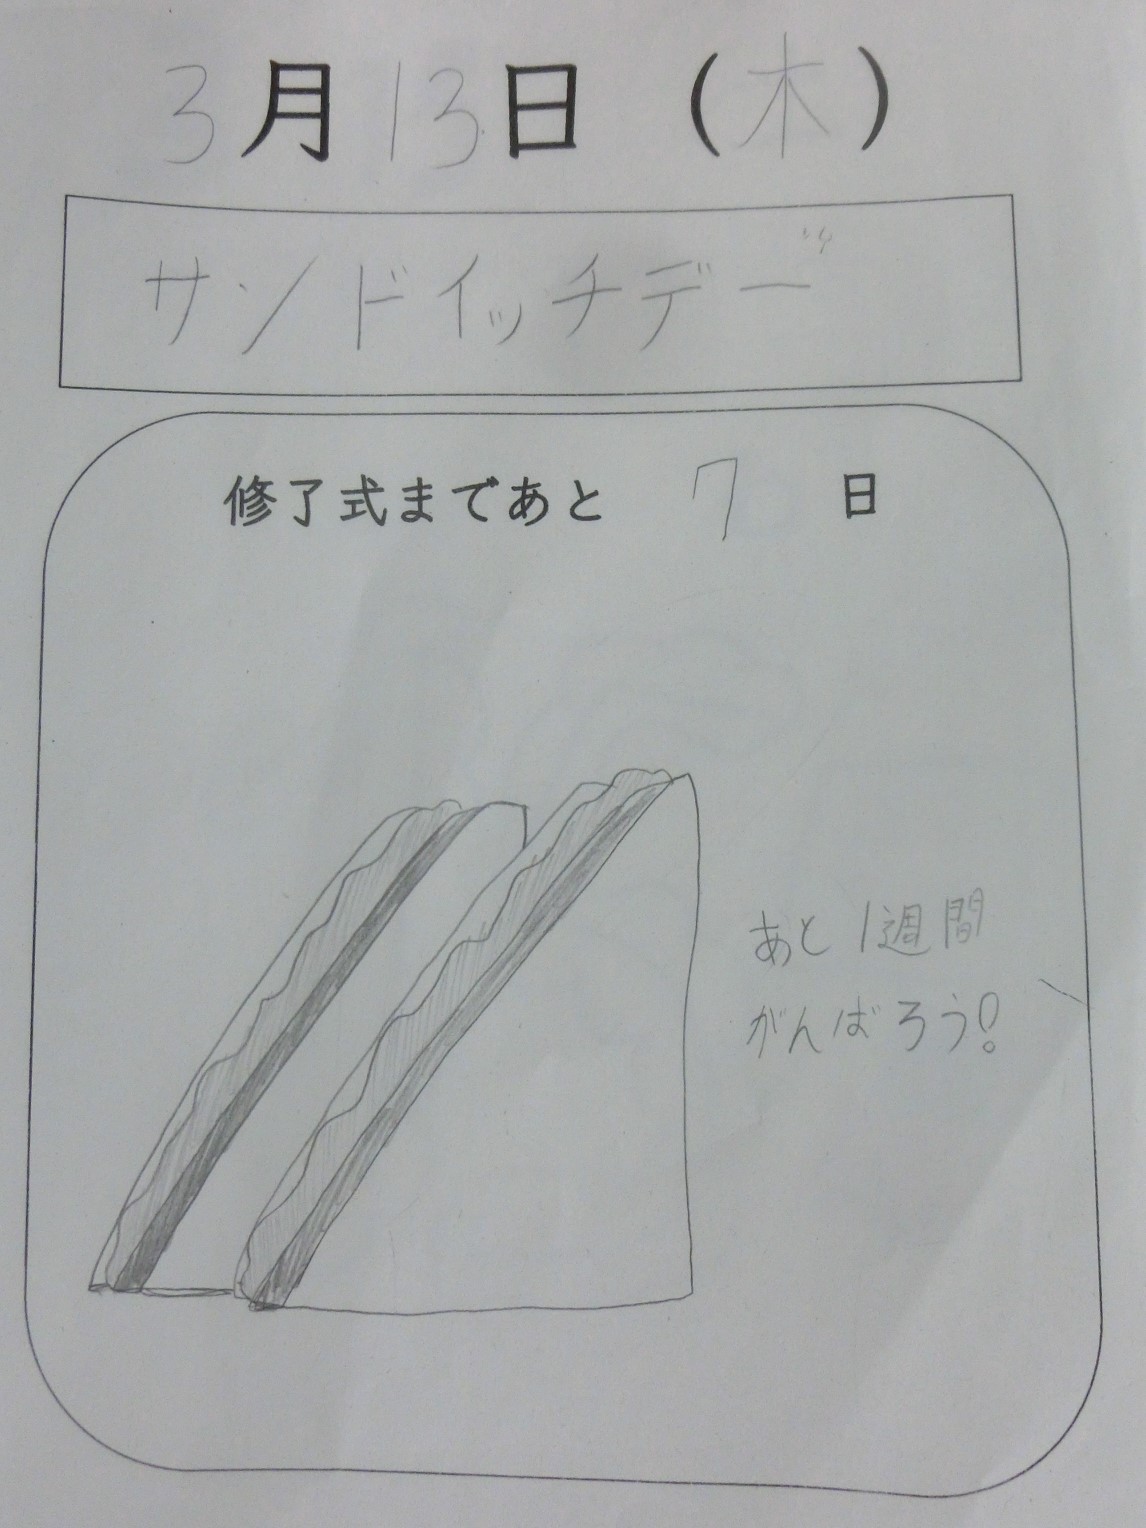 3月13日(木)
サンドイッチデー
修了式まであと 7 日
あと1週間
がんばろう!